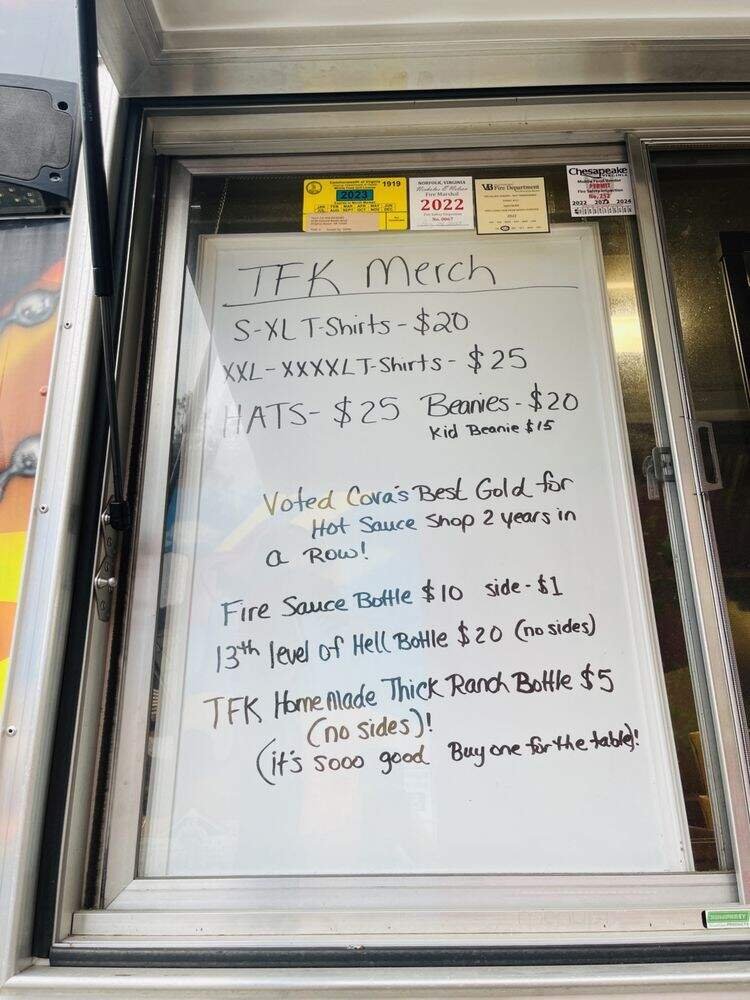 Commonwealth of Virginia
1919
2023
NORFOLK, VIRGINIA
Fire Marshal
2022
No. 0067
VB Fire Department
2022
Chesapeake
VIRGINIA
PERMIT
No. 252
2022 2023 2024
TFK Merch
S-XL T-Shirts - $20
XXL - XXXXL T-Shirts - $25
HATS - $25 Beanies - $20
Kid Beanie $15
Voted Cova's Best Gold for
Hot Sauce Shop 2 years in
a Row!
Fire Sauce Bottle $10 side - $1
13th level of Hell Bottle $20 (no sides)
TFK HomeMade Thick Ranch Bottle $5
(no sides)!
(it's sooo good Buy one for the table)!